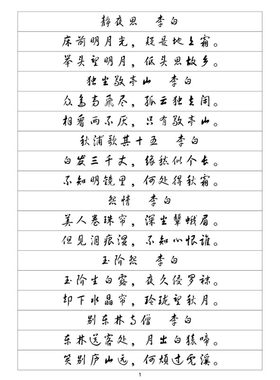 静夜思 李白
床前明月光，疑是地上霜。
举头望明月，低头思故乡。
独坐敬亭山 李白
众鸟高飞尽，孤云独去闲。
相看两不厌，只有敬亭山。
秋浦歌其十五 李白
白发三千丈，缘愁似个长。
不知明镜里，何处得秋霜。
怨情 李白
美人卷珠帘，深坐颦蛾眉。
但见泪痕湿，不知心恨谁。
玉阶怨 李白
玉阶生白露，夜久侵罗袜。
却下水晶帘，玲珑望秋月。
别东林寺僧 李白
东林送客处，月出白猿啼。
笑别庐山远，何烦过虎溪。
1